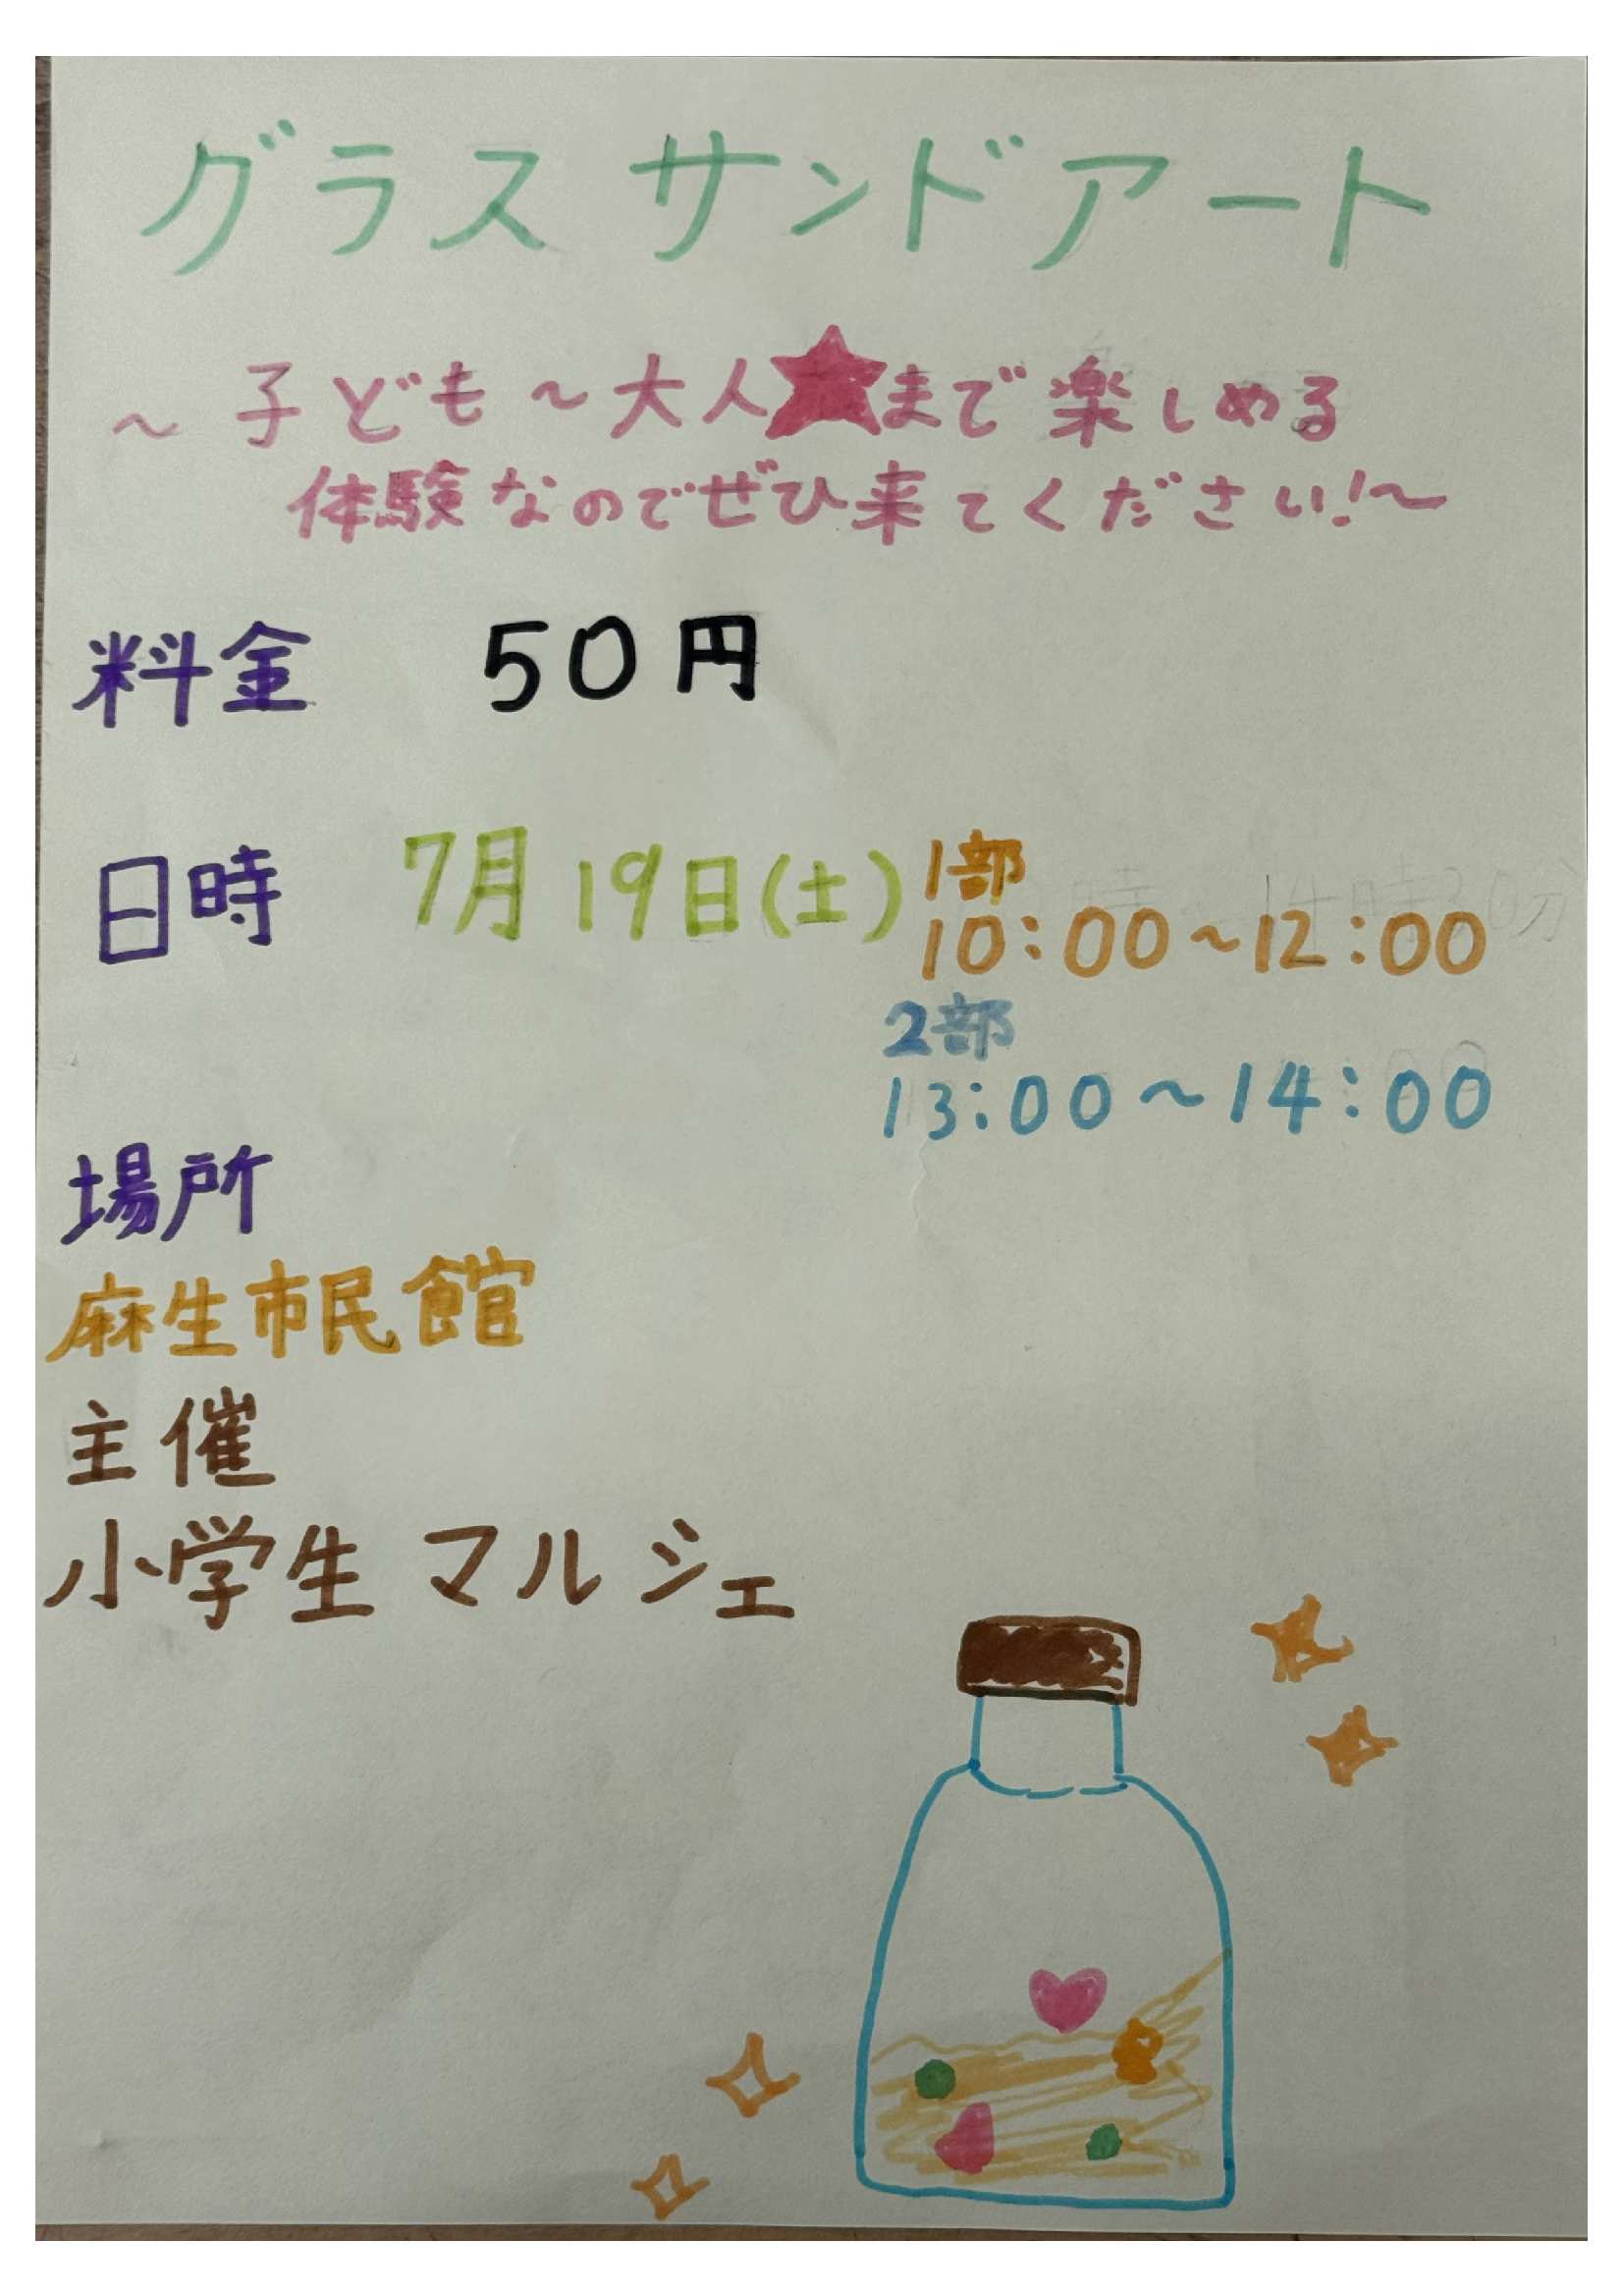 グラスサンドアート
～子ども～大人★まで楽しめる
体験なのでぜひ来てください!～
料金 50円
日時 7月19日(土) 1部
10:00～12:00
2部
13:00～14:00
場所
麻生市民館
主催
小学生マルシェ